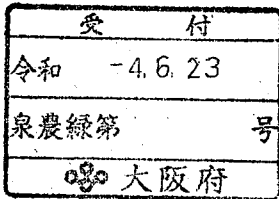 受 付
令和 -4.6.23
泉農緑第 号
大阪府